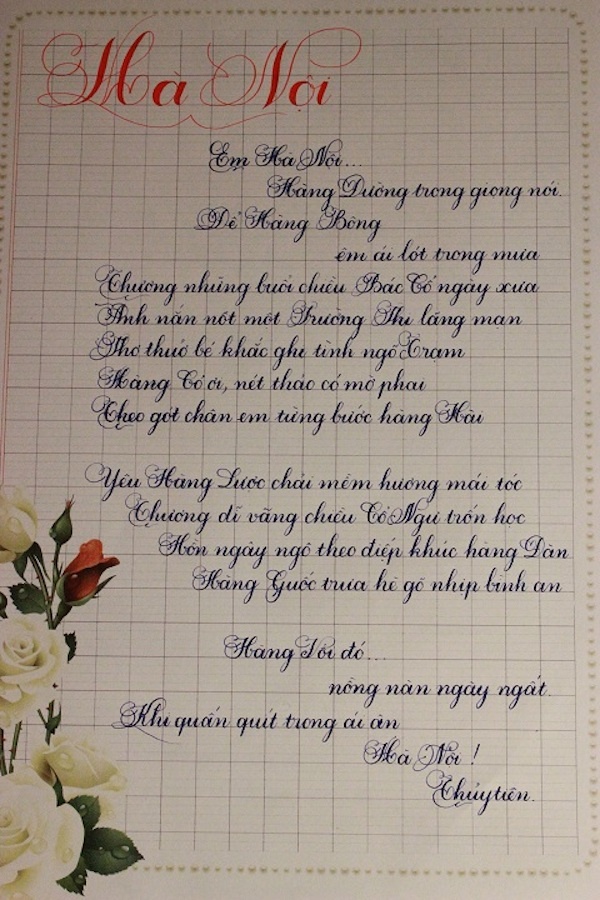 Hà Nội
Em Hà Nội...
Hàng Đường trong giọng nói.
Để Hàng Bông
êm ái lót trong mưa
Thương những buổi chiều Bác Cổ ngày xưa
Anh nắn nót một Trường Thi lãng mạn
Thơ thuở bé khắc ghi tình ngõ Trạm
Hàng Cờ ơi, nét thảo có mờ phai
Theo gót chân em từng bước hàng Hài
Yêu Hàng Lược chải mềm hương mái tóc
Thương dĩ vãng chiều Cổ Ngư trốn học
Hồn ngây ngô theo điệp khúc hàng Đàn
Hàng Guốc trưa hè gõ nhịp bình an
Hàng Tôi đó...
nồng nàn ngây ngất.
Khi quấn quít trong ái ân
Hà Nội !
Thủy tiên.